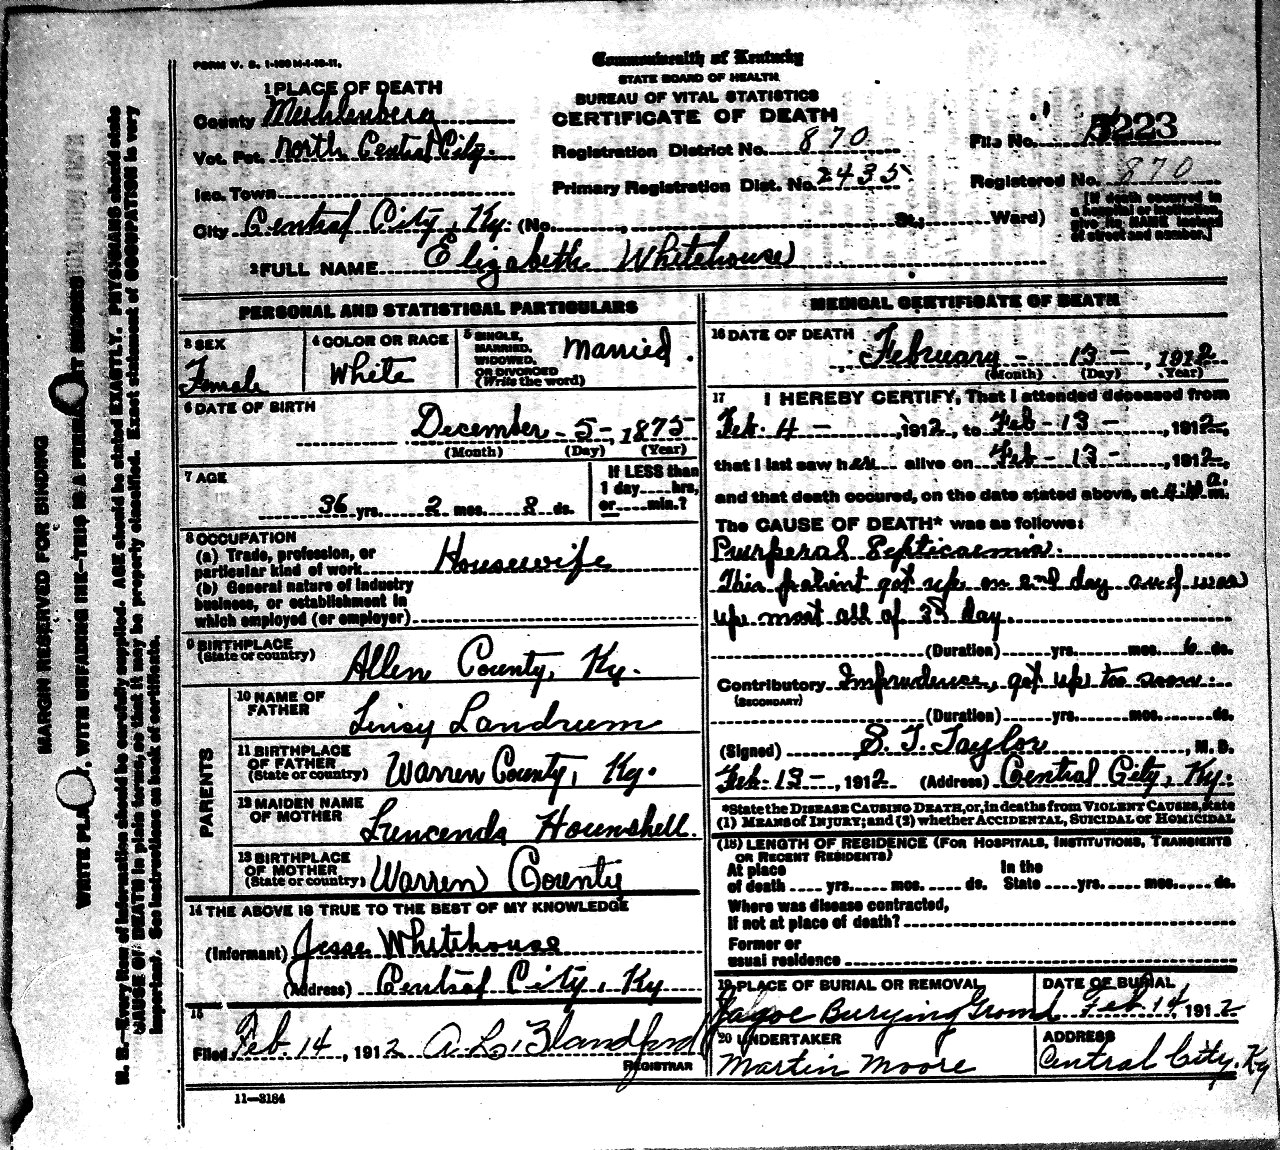 FORM V. S. 1-100 M-1-10-11.
Commonwealth of Kentucky
STATE BOARD OF HEALTH
BUREAU OF VITAL STATISTICS
CERTIFICATE OF DEATH
1 PLACE OF DEATH
County Muhlenberg
Vot. Pct. North Central City.
Inc. Town
City Central City, Ky. (No. , St.; Ward)
Registration District No. 870
Primary Registration Dist. No. 2435
File No. 223
Registered No. 870
[If death occurred in a hospital or institution, give its NAME instead of street and number.]
2 FULL NAME Elizabeth Whitehouse
PERSONAL AND STATISTICAL PARTICULARS
3 SEX
Female
4 COLOR OR RACE
White
5 SINGLE, MARRIED, WIDOWED, OR DIVORCED (Write the word)
Married.
6 DATE OF BIRTH
December - 5 -, 1875
(Month) (Day) (Year)
7 AGE
36 yrs. 2 mos. 8 ds.
If LESS than 1 day hrs, or min.?
8 OCCUPATION
(a) Trade, profession, or particular kind of work Housewife
(b) General nature of industry business, or establishment in which employed (or employer)
9 BIRTHPLACE (State or country)
Allen County, Ky.
PARENTS
10 NAME OF FATHER
Linsy Landrum
11 BIRTHPLACE OF FATHER (State or country)
Warren County, Ky.
12 MAIDEN NAME OF MOTHER
Luncenda Hounshell.
13 BIRTHPLACE OF MOTHER (State or country)
Warren County
14 THE ABOVE IS TRUE TO THE BEST OF MY KNOWLEDGE
(Informant) Jesse Whitehouse
(Address) Central City, Ky
15
Filed Feb. 14, 1912 A. L. Blandford
REGISTRAR
11-3184
MEDICAL CERTIFICATE OF DEATH
16 DATE OF DEATH
February - 13 -, 1912
(Month) (Day) (Year)
17 I HEREBY CERTIFY, That I attended deceased from
Feb. 4 -, 1912, to Feb - 13 -, 1912,
that I last saw her alive on Feb - 13 -, 1912,
and that death occured, on the date stated above, at a. m.
The CAUSE OF DEATH* was as follows:
Purperal Septicaemia.
This patient got up on 2nd day and was
up most all of 3rd day.
(Duration) yrs. mos. 6 ds.
Contributory Imprudence, got up too soon.
(SECONDARY)
(Duration) yrs. mos. ds.
(Signed) S. T. Taylor, M. D.
Feb. 13 -, 1912 (Address) Central City, Ky.
*State the DISEASE CAUSING DEATH, or, in deaths from VIOLENT CAUSES, state
(1) MEANS of INJURY; and (2) whether ACCIDENTAL, SUICIDAL or HOMICIDAL
(18) LENGTH OF RESIDENCE (FOR HOSPITALS, INSTITUTIONS, TRANSIENTS OR RECENT RESIDENTS)
At place of death yrs. mos. ds. In the State yrs. mos. ds.
Where was disease contracted,
If not at place of death?
Former or usual residence
19 PLACE OF BURIAL OR REMOVAL
Jagoe Burying Ground
DATE OF BURIAL
Feb. 14, 1912
20 UNDERTAKER
Martin Moore
ADDRESS
Central City, Ky
MARGIN RESERVED FOR BINDING
WRITE PLA , WITH UNFADING INK—THIS IS A PERMA T RECORD
N. B.—Every item of information should be carefully supplied. AGE should be stated EXACTLY. PHYSICIANS should state
CAUSE OF DEATH in plain terms, so that it may be properly classified. Exact statement of OCCUPATION is very
important. See instructions on back of certificate.